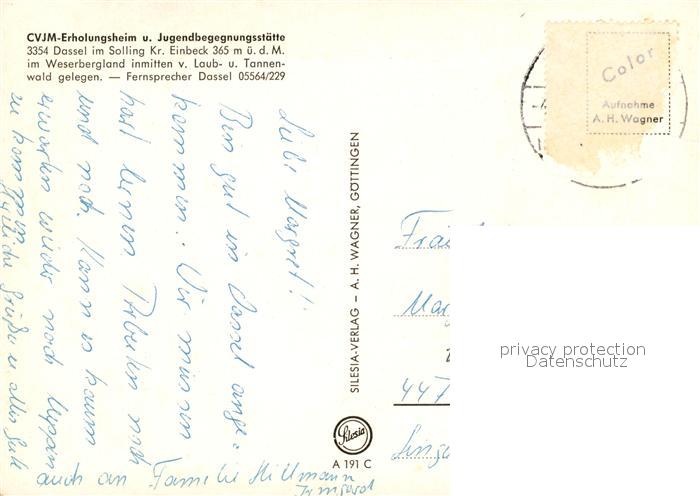 CVJM-Erholungsheim u. Jugendbegegnungsstätte
3354 Dassel im Solling Kr. Einbeck 365 m ü. d. M.
im Weserbergland inmitten v. Laub- u. Tannen-
wald gelegen. — Fernsprecher Dassel 05564/229
Color
Aufnahme
A. H. Wagner
Liebe Margret!
Bin gut in Dassel ange-
kommen. Wir müssen
hart lernen. Trotzdem noch
und noch. Kann es kaum
erwarten wieder nach Meppen
zu kommen.
Herzliche Grüße u. alles Gute
auch an Familie Hillmann
Irmgard
SILESIA-VERLAG – A. H. WAGNER, GÖTTINGEN
Silesia
A 191 C
Fräu
Mar
447
privacy protection
Datenschutz